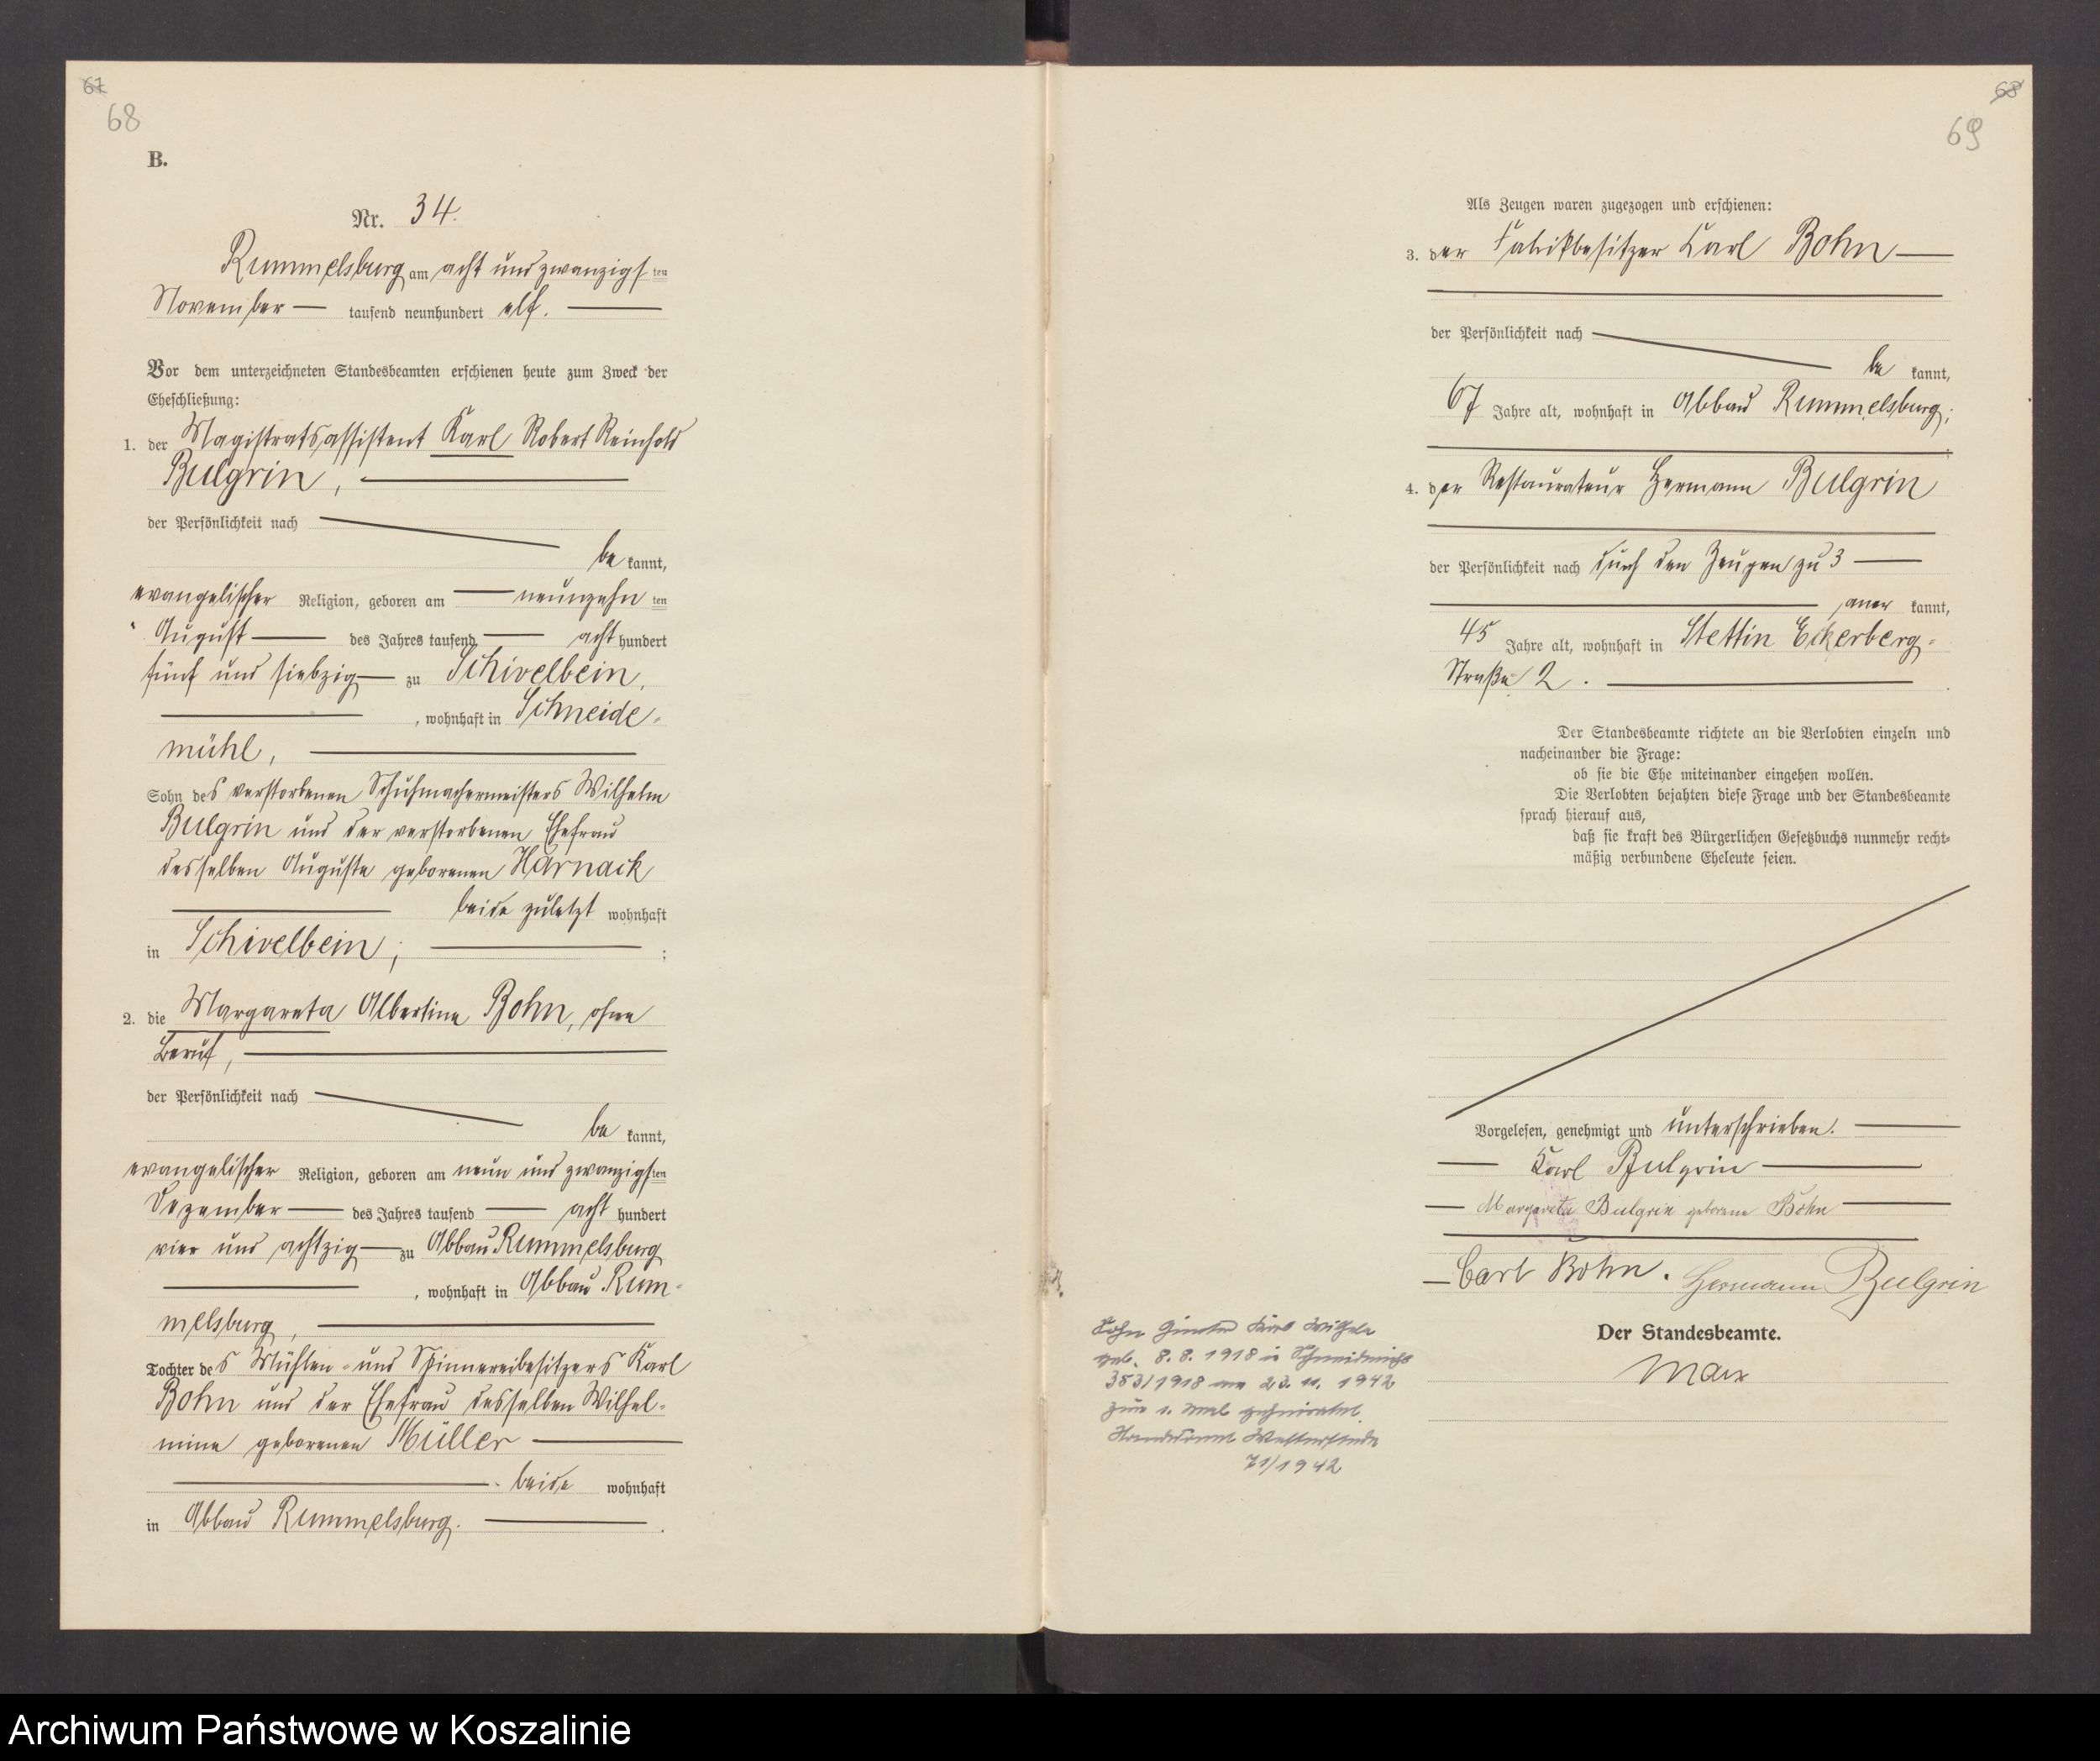 67
68
B.
Nr. 34.
Rummelsburg am acht und zwanzigsten
November tausend neunhundert elf.
Vor dem unterzeichneten Standesbeamten erschienen heute zum Zweck der
Eheschließung:
1. der Magistratsassistent Karl Robert Reinhold
Bulgrin,
der Persönlichkeit nach
be kannt,
evangelischer Religion, geboren am neunzehnten
August des Jahres tausend acht hundert
fünf und siebzig zu Schivelbein,
, wohnhaft in Schneide-
mühl,
Sohn des verstorbenen Schuhmachermeisters Wilhelm
Bulgrin und der verstorbenen Ehefrau
desselben Auguste geborenen Harnack
beide zuletzt wohnhaft
in Schivelbein;
2. die Margareta Albertine Bohn, ohne
Beruf,
der Persönlichkeit nach
be kannt,
evangelischer Religion, geboren am neun und zwanzigsten
Dezember des Jahres tausend acht hundert
vier und achtzig zu Abbau Rummelsburg
, wohnhaft in Abbau Rum-
melsburg,
Tochter des Mühlen- und Spinnereibesitzers Karl
Bohn und der Ehefrau desselben Wilhel-
mine geborenen Müller
beide wohnhaft
in Abbau Rummelsburg.
68
69
Als Zeugen waren zugezogen und erschienen:
3. der Fabrikbesitzer Karl Bohn
der Persönlichkeit nach
be kannt,
67 Jahre alt, wohnhaft in Abbau Rummelsburg;
4. der Restaurateur Hermann Bulgrin
der Persönlichkeit nach durch den Zeugen zu 3
aner kannt,
45 Jahre alt, wohnhaft in Stettin Eckerberg-
Straße 2.
Der Standesbeamte richtete an die Verlobten einzeln und
nacheinander die Frage:
ob sie die Ehe miteinander eingehen wollen.
Die Verlobten bejahten diese Frage und der Standesbeamte
sprach hierauf aus,
daß sie kraft des Bürgerlichen Gesetzbuchs nunmehr recht-
mäßig verbundene Eheleute seien.
Vorgelesen, genehmigt und unterschrieben.
Karl Bulgrin
Margareta Bulgrin geborene Bohn
Carl Bohn. Hermann Bulgrin
Der Standesbeamte.
Marx
Sohn Günter Karl Wilhelm
geb. 8.8.1918 in Schneidemühl
353/1918 am 23.11.1942
zum 1. Mal geheiratet.
Standesamt
71/1942
Archiwum Państwowe w Koszalinie